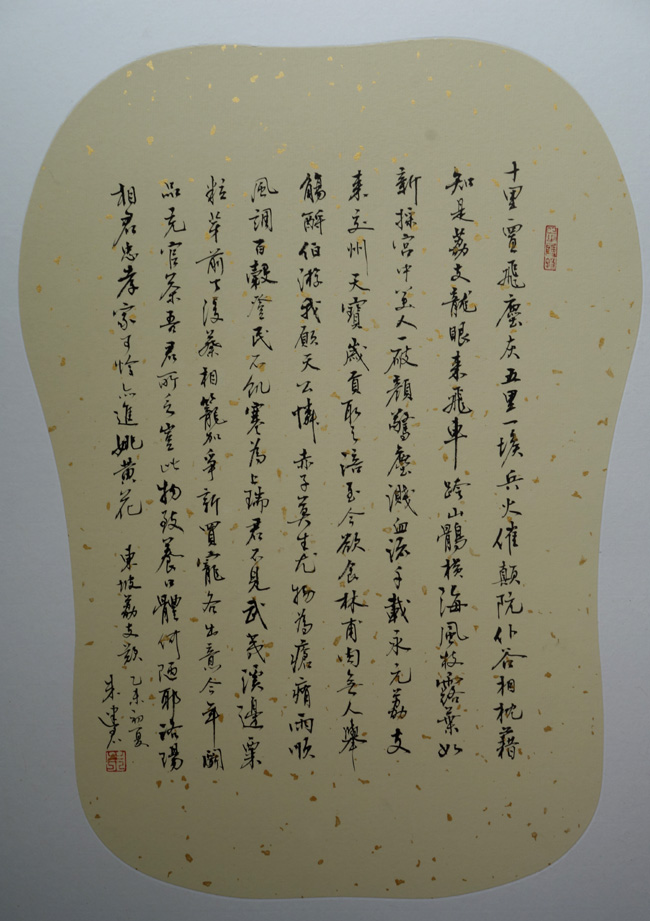 十里一置飛塵灰五里一堠兵火催顛阬仆谷相枕藉
知是荔支龍眼来飛車跨山鶻橫海風枝露葉如
新採宮中美人一破顏驚塵濺血流千載永元荔支
来交州天寶歲貢取之涪至今欲食林甫肉無人舉
觴酹伯游我願天公憐赤子莫生尤物為瘡痏雨順
風調百穀登民不飢寒為上瑞君不見武夷溪邊粟
粒芽前丁後蔡相籠加爭新買寵各出意今年鬭
品充官茶吾君所乏豈此物致養口體何陋耶洛陽
相君忠孝家可怜亦進姚黄花 東坡荔支歎 乙未初夏
朱建